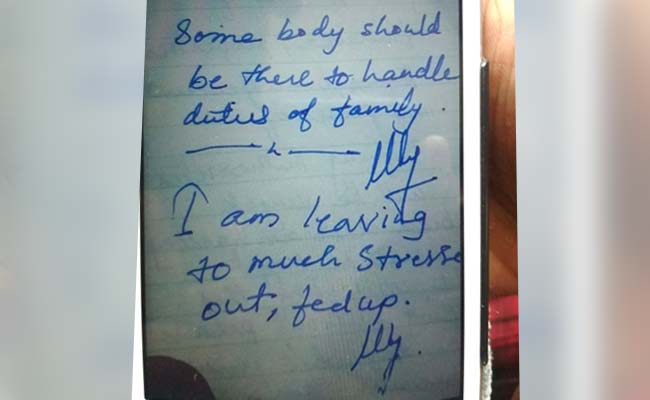 Some body should
be there to handle
duties of family.
I am leaving
to much Stresse
out, fed up.